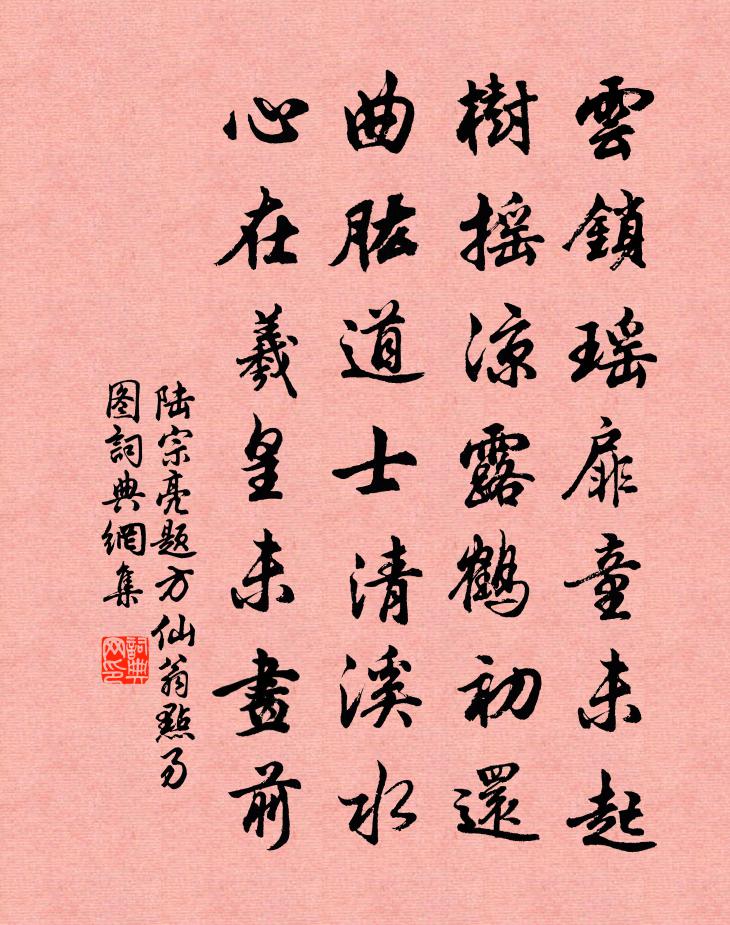 雲鎖瑶扉童未起
樹摇涼露鶴初還
曲肱道士清溪水
心在羲皇未畫前
陆宗亮题方仙翁點易
图詞典網集
詞典网印